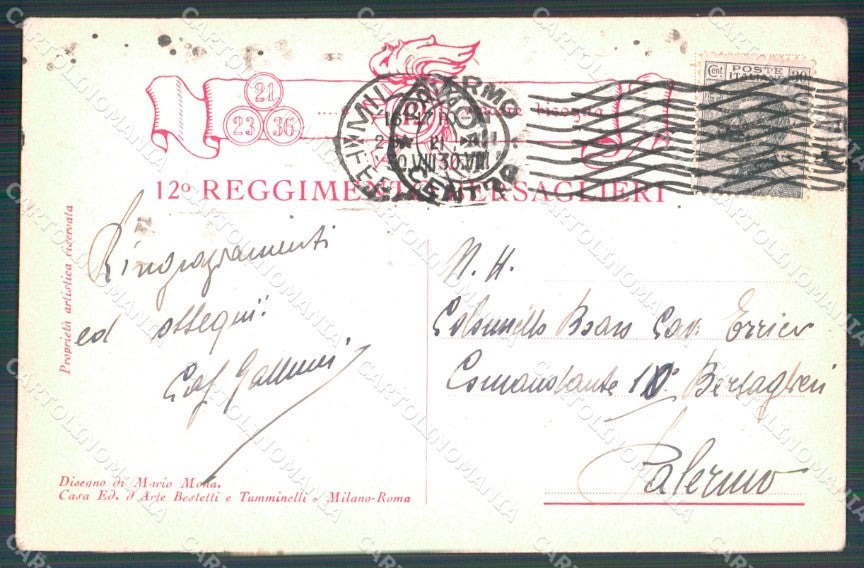 21
23 36
bisogna
12º REGGIMENTO BERSAGLIERI
POSTE
ITALIANE
Cent 20
PALERMO
CENTRO
Proprietà artistica riservata
Ringraziamenti
ed ossequi
N. H.
Colonnello Cav. Errico
Comandante 10° Bersaglieri
Palermo
Disegno di Mario Mona.
Casa Ed. d'Arte Bestetti e Tumminelli - Milano-Roma
CARTOLINOMANIA